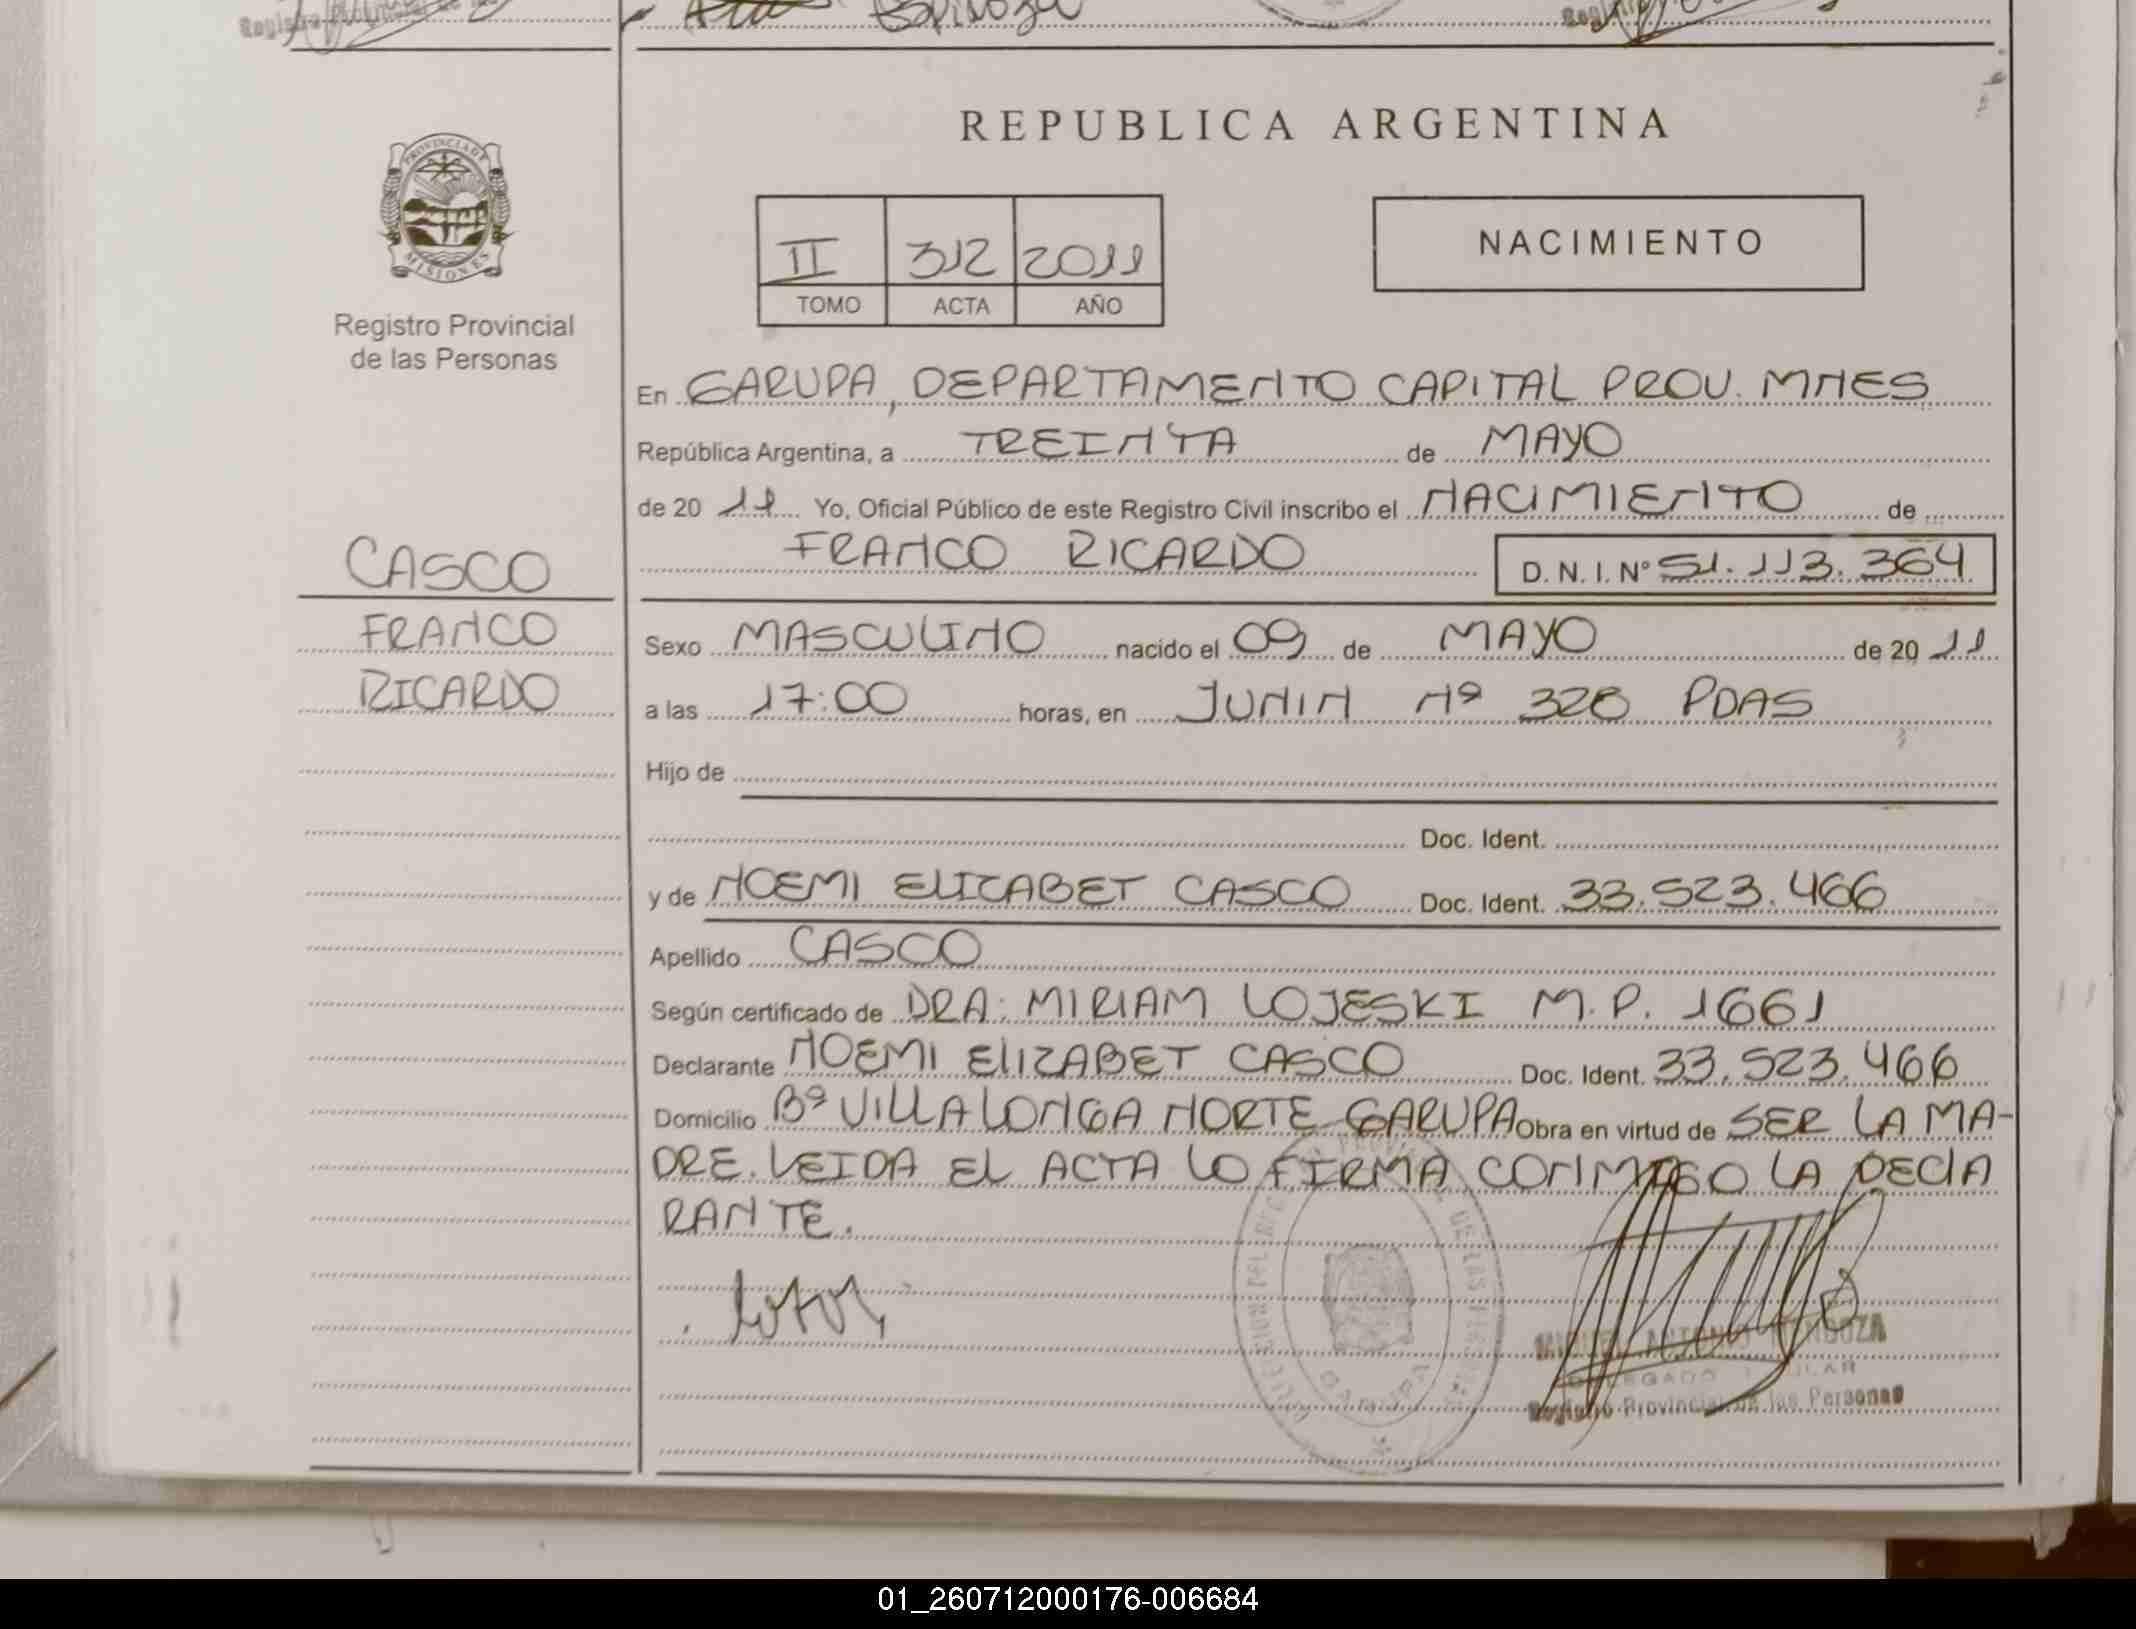 Espinoza
REPUBLICA ARGENTINA
PROVINCIA DE
MISIONES
Registro Provincial
de las Personas
II 312 2011
TOMO ACTA AÑO
NACIMIENTO
En GARUPA, DEPARTAMENTO CAPITAL PROV. MNES
República Argentina, a TREINTA de MAYO
de 20 11 Yo, Oficial Público de este Registro Civil inscribo el NACIMIENTO de
FRANCO RICARDO D.N.I. Nº 51.113.364
CASCO
FRANCO
RICARDO
Sexo MASCULINO nacido el 09 de MAYO de 20 11
a las 17:00 horas, en JUNIN Nº 328 PDAS
Hijo de
Doc. Ident.
y de NOEMI ELIZABET CASCO Doc. Ident. 33.523.466
Apellido CASCO
Según certificado de DRA: MIRIAM LOJESKI M.P. 1661
Declarante NOEMI ELIZABET CASCO Doc. Ident. 33.523.466
Domicilio Bº VILLALONGA NORTE GARUPA Obra en virtud de SER LA MA-
DRE. LEIDA EL ACTA LO FIRMA CONMIGO LA DECLA
RANTE.
DE LAS
GARUPA
MIGUEL ANTONIO
Registro Provincial de las Personas
01_260712000176-006684